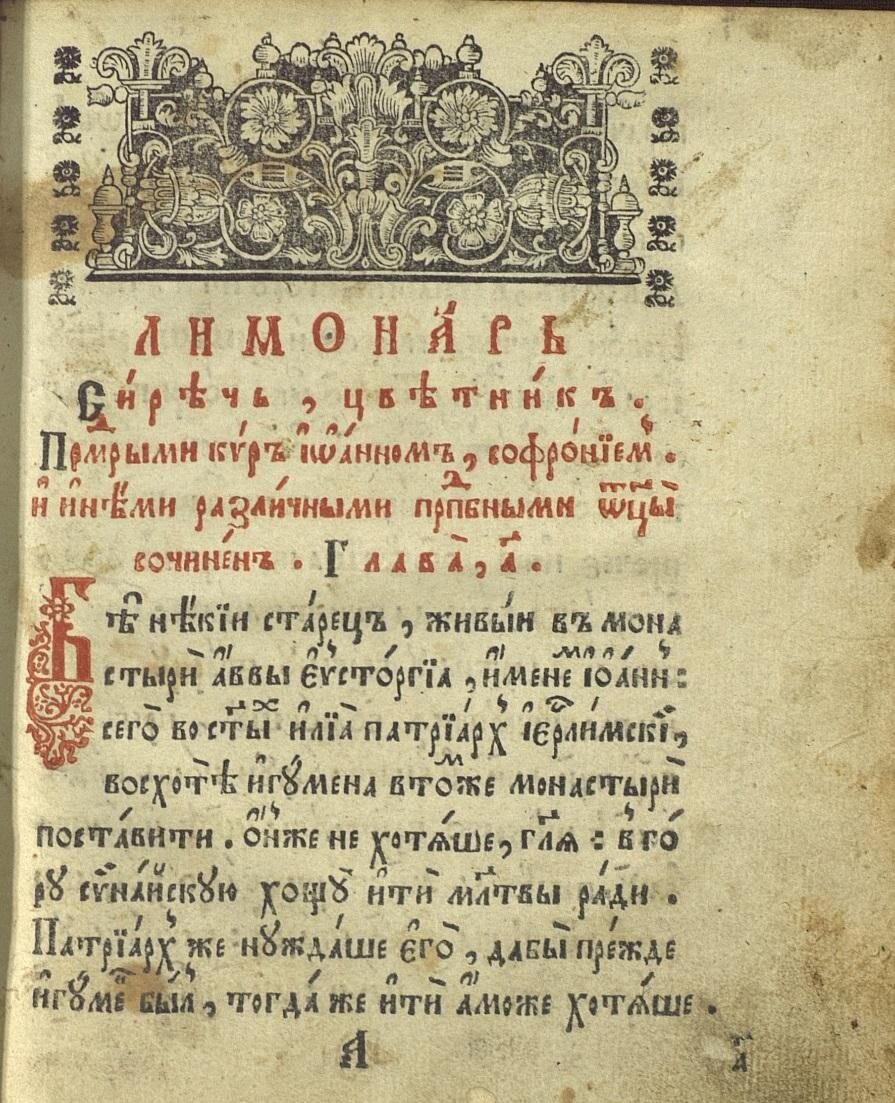 ЛИМОНА́РЬ
Си́рѣчь, цвѣтни́къ.
Премⷣрыми ки́ръ і҆ѡа́нномъ, софро́нїемъ.
И҆ и҆нѣ́ми разли́чными прпⷣбными ѻ҆тцы̀
сочине́нъ. Глава̀, а҃.
Бѣ̀ нѣ́кїи ста́рецъ, живы́и въ мона
стырѝ а҆́ввы є҆ѵсто́ргїа, и҆́менемъ і҆ѡа́ннъ:
сего̀ во ст҃ы́хъ и҆лїа̀ патрїа́рхъ і҆ерⷭ҇ли́мскїи,
восхотѣ̀ и҆гꙋ́мена в то́мже монастырѝ
поста́вити. Ѻ҆́нже не хотѧ́ше, гл҃ѧ: в̾ го́
рꙋ сѵна́йскꙋю хощꙋ̀ и҆тѝ мл҃твы ра́ди.
Патрїа́рхъ же нꙋжда́ше є҆го̀, дабы̀ пре́жде
и҆гꙋ́менъ бы́лъ, тогда́ же и҆тѝ а҆́може хотѧ́ше.
А
а҃